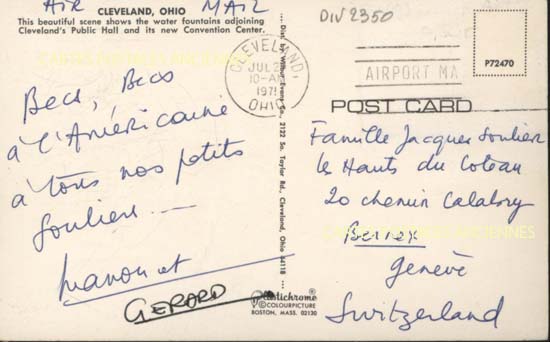 AIR MAIL
CLEVELAND, OHIO
This beautiful scene shows the water fountains adjoining
Cleveland's Public Hall and its new Convention Center.
Becs, Becs
à l'Américaine
à tous nos petits
Soulier ...
Manon et
GERARD
Dist. by Wilbur Evans Co., 2122 So. Taylor Rd., Cleveland, Ohio 44118
Plastichrome
COLOURPICTURE
BOSTON, MASS. 02130
DIV 2350
CLEVELAND,
JUL 2
10-AM
197
OHIO
AIRPORT MA
P72470
POST CARD
Famille Jacques Soulier
les Hauts du Coteau
20 chemin
Bernex
Genève
Switzerland